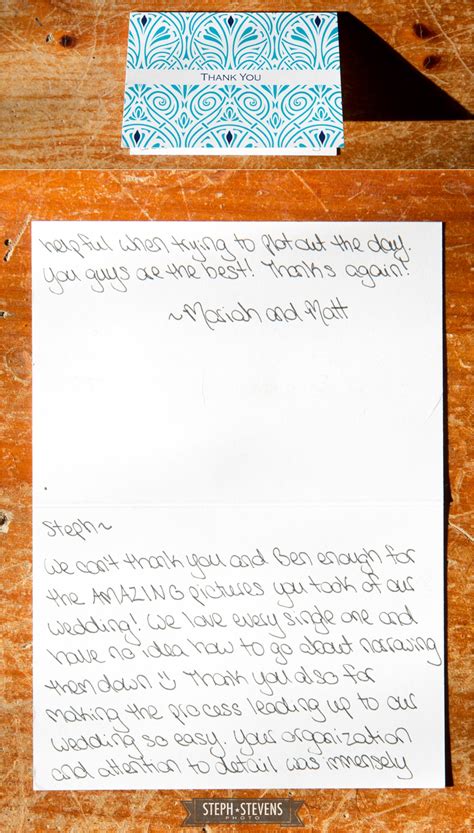 Thank You
helpful when trying to plot out the day.
You guys are the best! Thanks again!
~Mariah and Matt
Steph~
We can't thank you and Ben enough for
the AMAZING pictures you took of our
wedding! We love every single one and
have no idea how to go about narrowing
them down Thank you also for
making the process leading up to our
wedding so easy. Your organization
and attention to detail was immensely
STEPH STEVENS
PHOTO